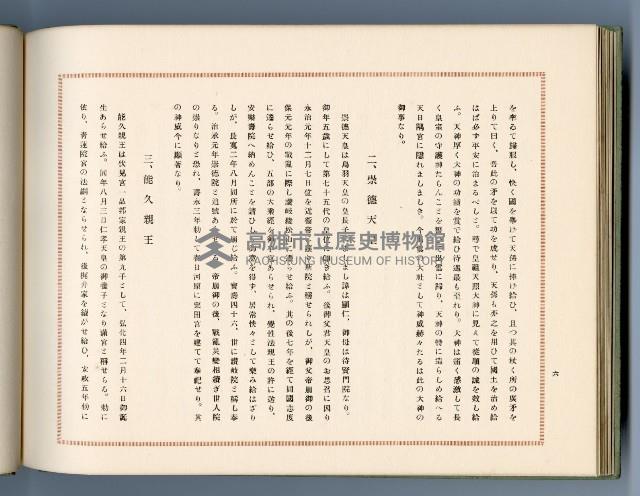 を率ゐて歸服し、快く國を擧げて天孫に捧げ給ひ、且つ其の杖く所の廣矛を
上りて曰く、吾此の矛を以て功を成せり、天孫も亦之を用ひて國土を治め給
はば必ず平安に治まるべしと。尋で皇祖天照大神に見えて從順の誠を致し給
ふ。天神厚く大神の功績を賞で給ひ待遇最も至れり。大神は痛く感激して長
く皇室の守護神たらんことを誓ひ出雲に歸り、天神の特に造らしめ給へる
天日隅宮に隱れましましき。今の出雲の大社として神威赫々たるは此の大神の
御事なり。
二、崇德天皇
崇德天皇は鳥羽天皇の皇長子にましまし諱は顯仁、御母は待賢門院なり。
御年五歲にして第七十五代の皇位に卽き給ふ。後御父君天皇のお思召に因り
永治元年十二月七日位を近衞帝に讓り
保元元年の戰亂に際し讚岐松山に遷らせ給ふ。其の後七年を經て同國志度
に遷らせ給ひ、五部の大乘經を
安樂壽院へ納めんことを請ひしも許を得ず、居常怏々として樂み給はざり
しが、長寬二年八月同所に於て崩じ給ふ。寶壽四十六、世に讚岐院と稱し奉
る。治承元年崇德院と追號あらせらる。帝崩御の後、戰亂災變相續ぎ世人院
の祟りなりと恐れ、壽永三年勅して春日河原に粟田宮を建てて奉祀せり。其
の神威今に顯著なり。
三、能久親王
能久親王は伏見宮一品邦家親王の第九子として、弘化四年二月十六日御誕
生あらせ給ふ。同年八月三日仁孝天皇の御養子となり滿宮と稱せらる。勅に
依り、靑蓮院宮の法嗣とならせられ、後梶井家を繼がせ給ひ、安政五年勅に
六
高雄市立歷史博物館
KAOHSIUNG MUSEUM OF HISTORY